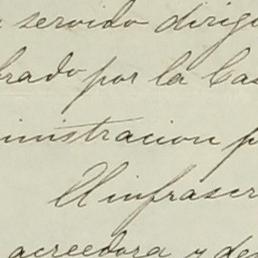 servido dirigi
brado por la Cas
ministracion p
El infrascr
acreedora y de